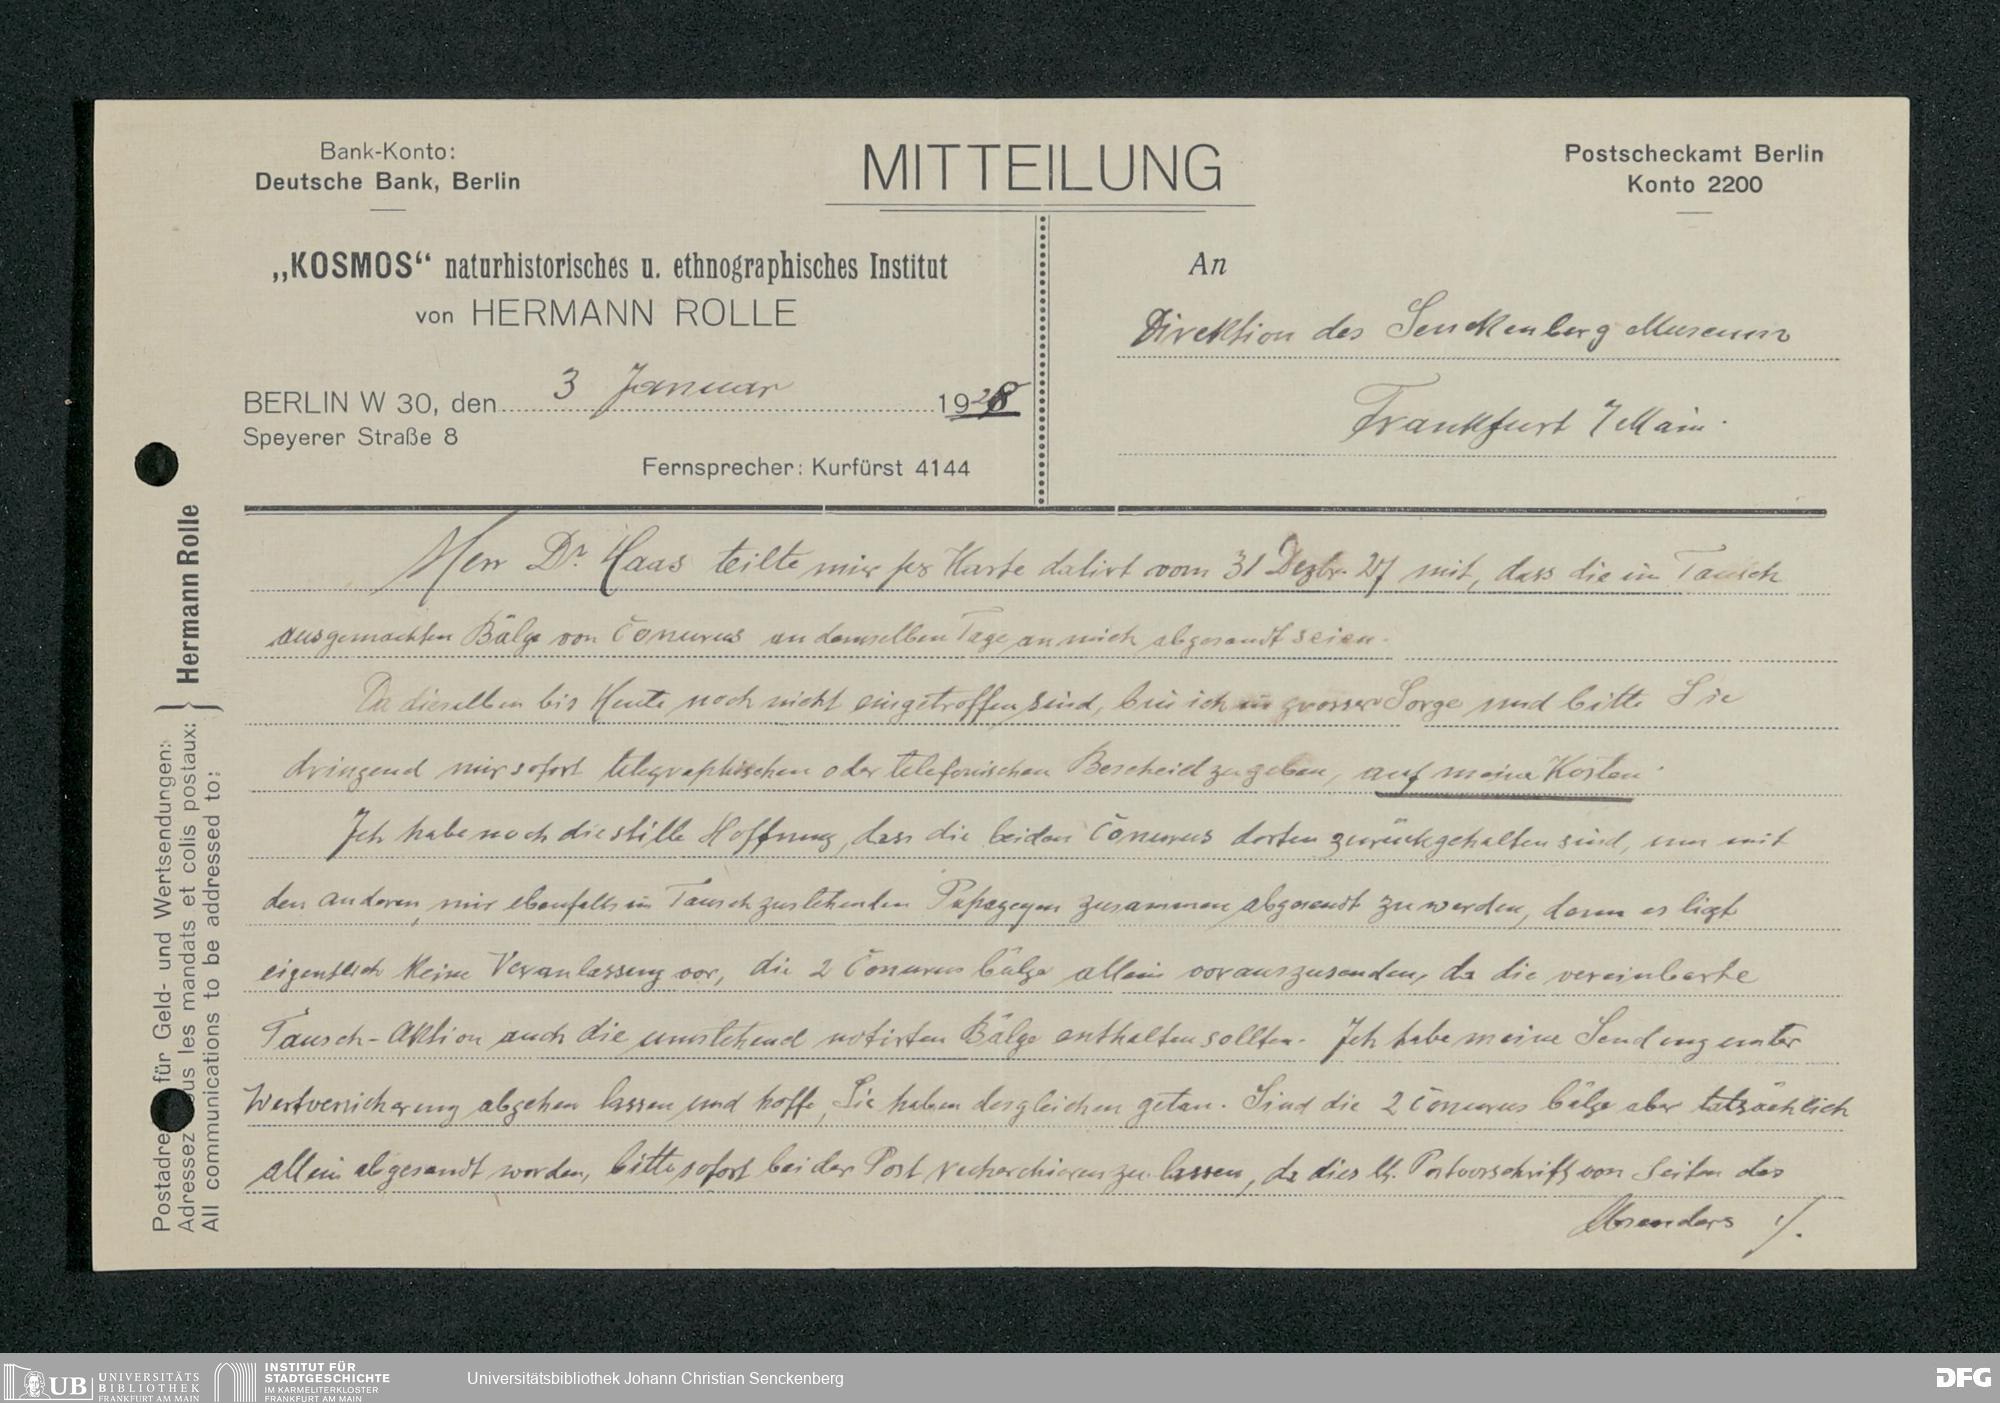 Bank-Konto:
Deutsche Bank, Berlin
MITTEILUNG
Postscheckamt Berlin
Konto 2200
„KOSMOS“ naturhistorisches u. ethnographisches Institut
von HERMANN ROLLE
BERLIN W 30, den 3 Januar 1928
Speyerer Straße 8
Fernsprecher: Kurfürst 4144
An
Direktion des Senckenberg Museum
Frankfurt / Main.
Postadre für Geld- und Wertsendungen:
Adressez ous les mandats et colis postaux:
All communications to be addressed to:
} Hermann Rolle
Herr Dr. Haas teilte mir per Karte datirt vom 31 Dezbr. 27 mit, dass die im Tausch
ausgemachten Bälge von Conurus an demselben Tage an mich abgesandt seien.
Da dieselben bis Heute noch nicht eingetroffen sind, bin ich in grosser Sorge und bitte Sie
dringend mir sofort telegraphischen oder telefonischen Bescheid zu geben, auf meine Kosten.
Ich habe noch die stille Hoffnung, dass die beiden Conurus dorten zurückgehalten sind, um mit
den anderen, mir ebenfalls im Tausch zustehenden Papageyen zusammen abgesandt zu werden, denn es liegt
eigentlich keine Veranlassung vor, die 2 Conurus bälge allein vorauszusenden, da die vereinbarte
Tausch-Aktion auch die umstehend notirten Bälge enthalten sollten. Ich habe meine Sendung unter
Wertversicherung abgehen lassen und hoffe, Sie haben desgleichen getan. Sind die 2 Conurus bälge aber tatsächlich
allein abgesandt worden, bitte sofort bei der Post recherchieren zu lassen, da dies lt. Postvorschrift von Seiten des
Absenders ./.
UB UNIVERSITÄTS
BIBLIOTHEK
FRANKFURT AM MAIN
INSTITUT FÜR
STADTGESCHICHTE
IM KARMELITERKLOSTER
FRANKFURT AM MAIN
Universitätsbibliothek Johann Christian Senckenberg
DFG